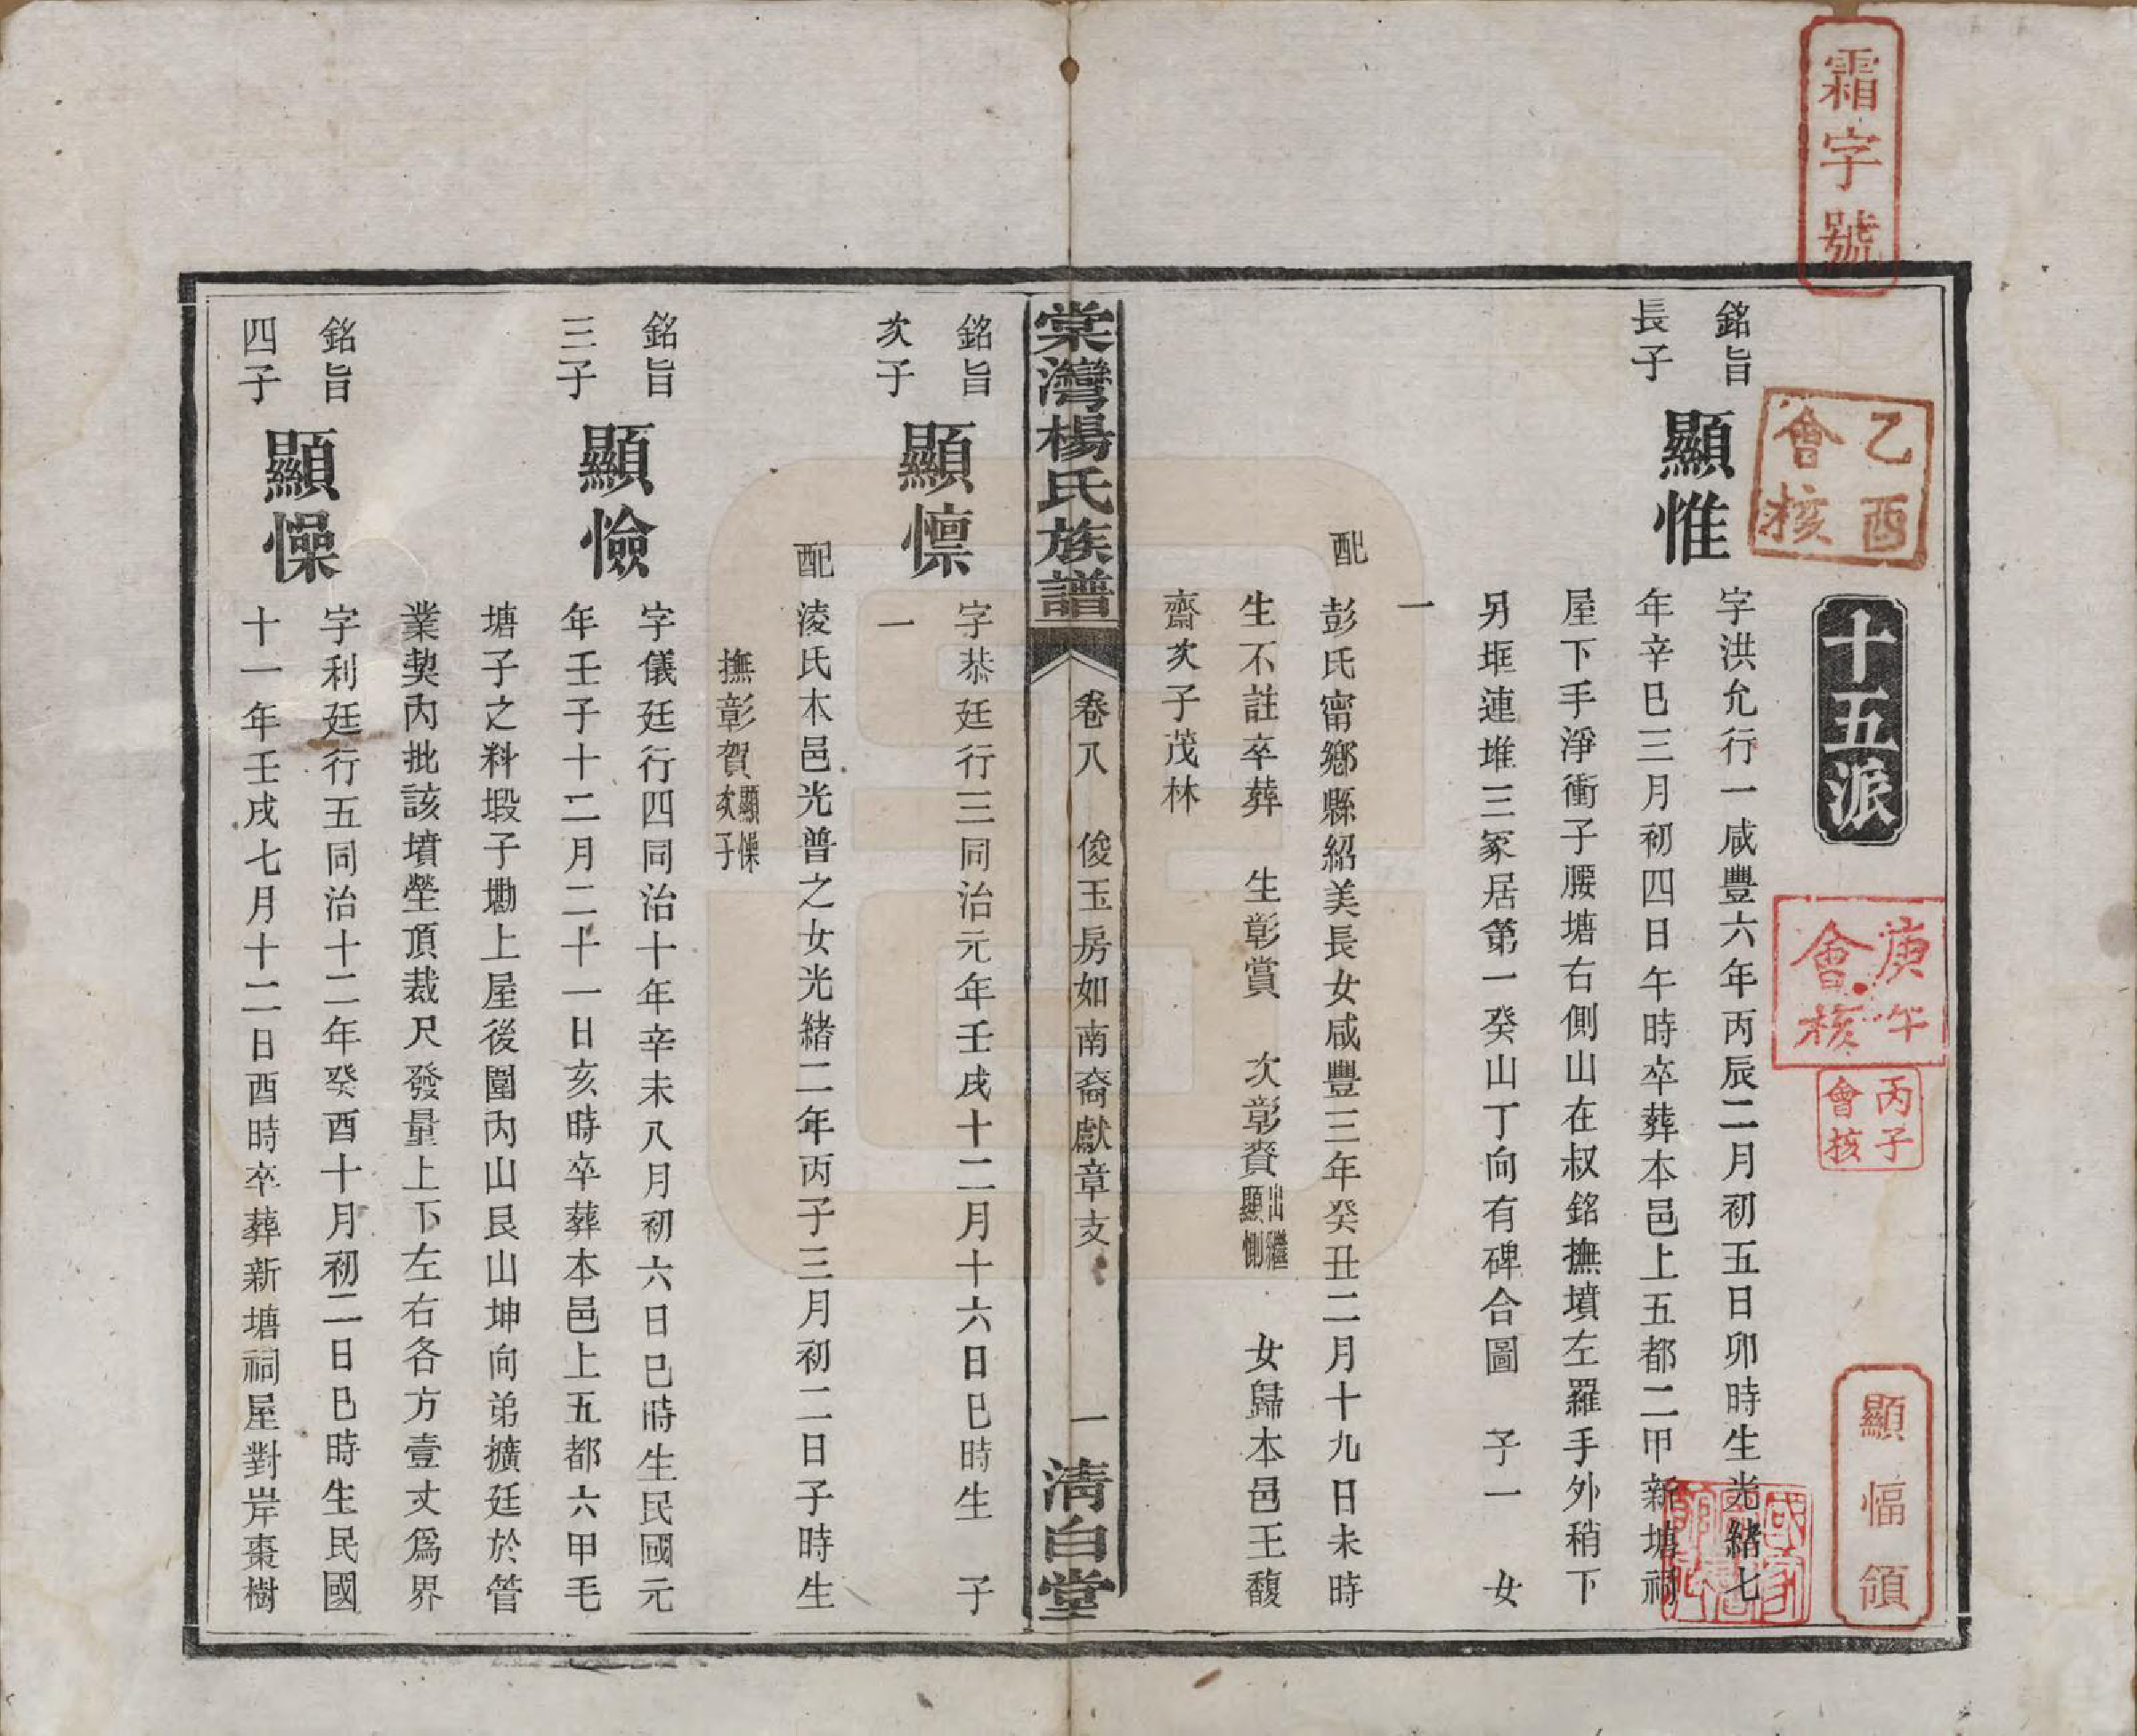 霜字號
乙酉
會核
十五派
庚午
會核
丙子
會核
顯愊領
銘旨
長子
顯惟
字洪允行一咸豐六年丙辰二月初五日卯時生光緒七
年辛巳三月初四日午時卒葬本邑上五都二甲新塘祠
屋下手淨衝子腰塘右側山在叔銘撫墳左羅手外稍下
另堆連堆三冢居第一癸山丁向有碑合圖　子一　女
一
配
彭氏甯鄉縣紹美長女咸豐三年癸丑二月十九日未時
生不註卒葬　生彰賞　次彰賚出繼顯惻　女歸本邑王馥
齋次子茂林
棠灣楊氏族譜
卷八　俊玉房如南裔獻章支　一
清白堂
銘旨
次子
顯懍
字恭廷行三同治元年壬戌十二月十六日巳時生　子
一
配
淩氏木邑光普之女光緒二年丙子三月初二日子時生
撫彰賀顯懆次子
銘旨
三子
顯憸
字儀廷行四同治十年辛未八月初六日巳時生民國元
年壬子十二月二十一日亥時卒葬本邑上五都六甲毛
塘子之料塅子墈上屋後圍內山艮山坤向弟擴廷於管
業契內批該墳塋頂裁尺發量上下左右各方壹丈爲界
銘旨
四子
顯懆
字利廷行五同治十二年癸酉十月初二日巳時生民國
十一年壬戌七月十二日酉時卒葬新塘祠屋對岸棗樹